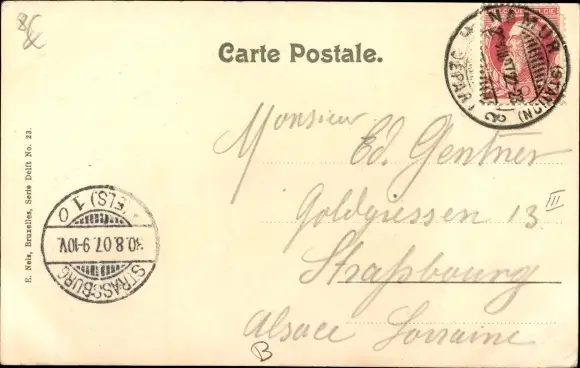 Carte Postale.
NAMUR
(STATION)
(DEPART)
Monsieur
Ed. Gentner
Goldgiessen 13 III
Straßbourg
Alsace Lorraine
B
STRASSBURG
30.8.07.9-10V.
(ELS) 1 o
E. Nels, Bruxelles, Serie Delft No. 23.